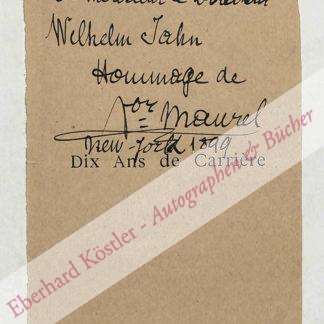 à Monsieur le Directeur
Wilhelm Jahn
Hommage de
Vor= Maurel
New-York 1899
Dix Ans de Carrière
Eberhard Köstler - Autographen & Bücher